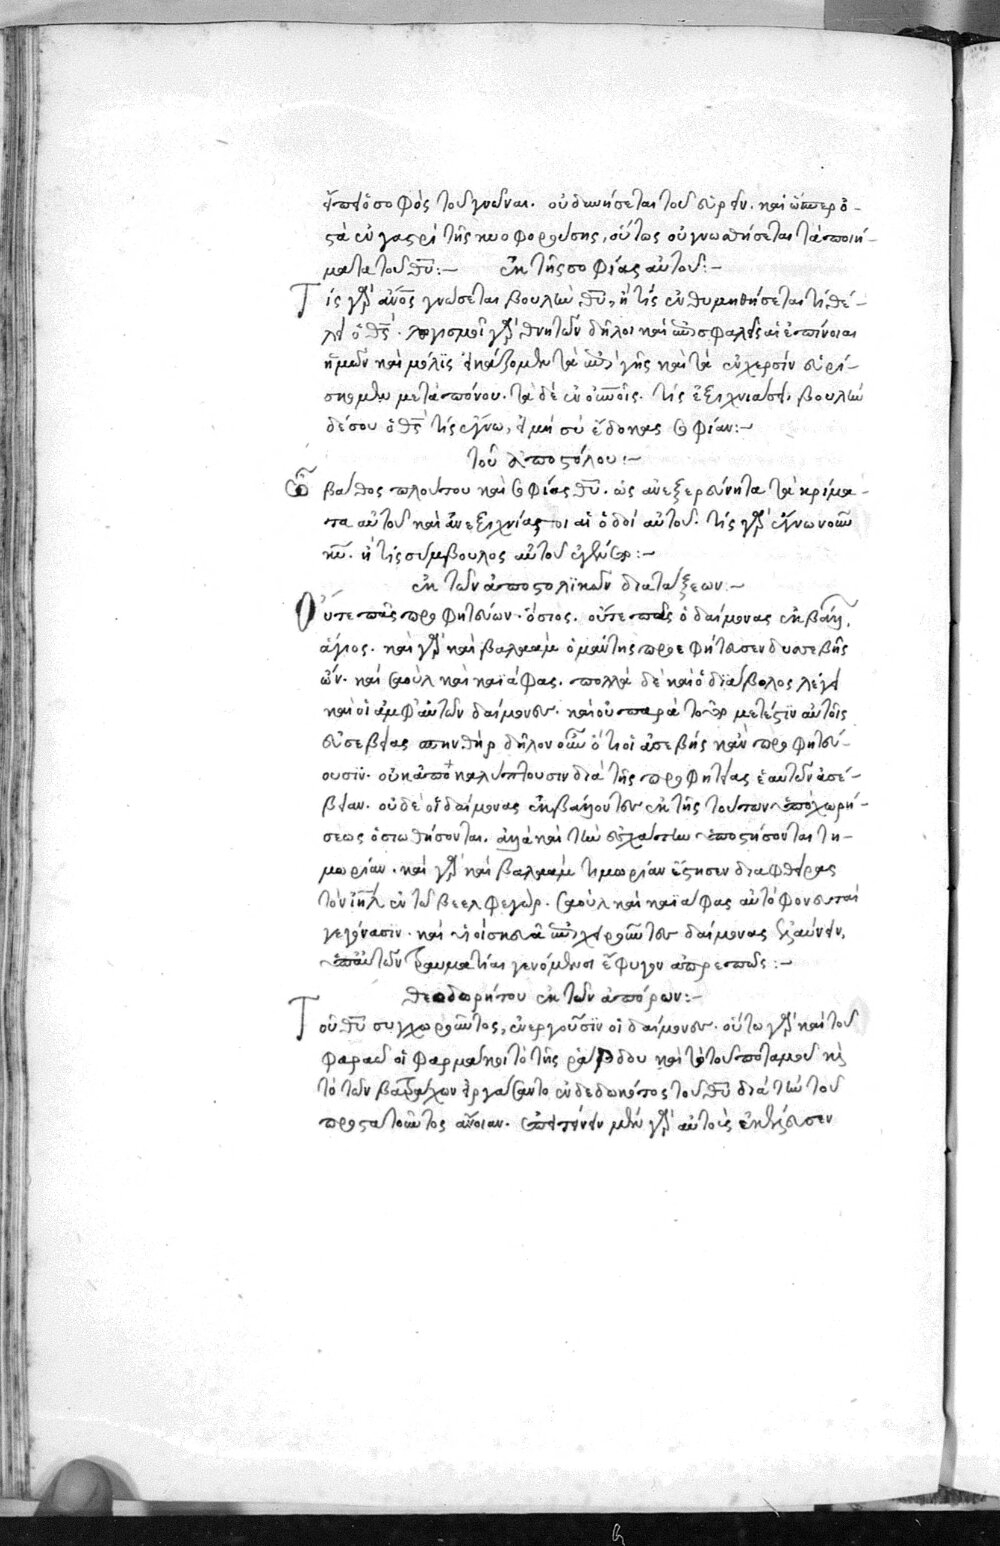 εἴπῃ ὁ σοφὸς τοῦ γνῶναι. οὐ δυνήσεται τοῦ εὑρεῖν. καὶ ὥσπερ ὀ-
στᾶ ἐν γαστρὶ τῆς κυοφορούσης, οὕτως οὐ γνωσθήσεται τὰ ποιή-
ματα τοῦ θ͞υ:— ἐκ τῆς σοφίας αὐτοῦ:—
Τίς γὰρ ἀν͞ος γνώσεται βουλὴν θ͞υ, ἢ τίς ἐνθυμηθήσεται τί θέ-
λει ὁ θ͞ς. λογισμοὶ γὰρ θνητῶν δῆλοι καὶ ἐπισφαλεῖς αἱ ἐπίνοιαι
ἡμῶν καὶ μόλϊς εἰκάζομεν τὰ ἐπὶ γῆς καὶ τὰ ἐν χερσὶν εὑρί-
σκομεν μετὰ πόνου. τὰ δὲ ἐν οὐνοῖς. τίς ἐξιχνιάσει, βουλὴν
δέ σου ὁ θ͞ς τίς ἔγνω, εἰ μὴ σὺ ἔδωκας σοφίαν:—
τοῦ ἀποστόλου:—
Ὦ βάθος πλούτου καὶ σοφίας θ͞υ. ὡς ἀνεξερεύνητα τὰ κρίμα-
τα αὐτοῦ καὶ ἀνεξιχνίαστοι αἱ ὁδοὶ αὐτοῦ. τίς γὰρ ἔγνω νοῦν
κ͞υ. ἢ τίς σύμβουλος αὐτοῦ ἐγένετο:—
ἐκ τῶν ἀποστολϊκῶν διατάξεων:—
Οὔτε πᾶς προφητεύων. ὅσιος. οὔτε πᾶς ὁ δαίμονας ἐκβάλλων,
ἅγιος. καὶ γὰρ καὶ βαλαὰμ ὁ μάντης προεφήτευσεν δυσσεβὴς
ὤν. καὶ σαοὺλ καὶ καϊάφας. πολλὰ δὲ καὶ ὁ διάβολος λέγει
καὶ οἱ ἀμφ' αὐτὸν δαίμονες. καὶ οὐ παρὰ τοῦτο μετέστϊν αὐτοῖς
εὐσεβείας σπινθὴρ δῆλον οὖν ὅτι οἱ ἀσεβεῖς κἂν προφητεύ-
ουσϊν. οὐκ ἀποκαλύπτουσιν διὰ τῆς προφητείας ἑαυτῶν ἀσέ-
βειαν. οὐδὲ οἱ δαίμονας ἐκβάλλοντες ἐκ τῆς τούτων ὑποχωρή-
σεως ὁσιωθήσονται. ἀλλὰ καὶ τὴν ἐσχάτην ὑποστήσονται τι-
μωρίαν. καὶ γὰρ καὶ βαλαὰμ τιμωρίαν ἔτησεν διαφθείρας
τὸν ἰ͞ηλ ἐν τῷ βεελφεγώρ. σαοὺλ καὶ καϊάφας αὐτόφονευταὶ
γεγόνασιν. καὶ υἱοὶ σκευᾶ ἐπιχειροῦντες δαίμονας ἐξελαύνειν,
ὑπ' αὐτῶν τραυματίαι γενόμενοι ἔφυγον ἀπρεπῶς:—
θεοδωρήτου ἐκ τῶν ἀπόρων:—
Τοῦ θ͞υ συγχωροῦντος, ἐνεργοῦσϊν οἱ δαίμονες. οὕτω γὰρ καὶ τοῦ
φαραὼ οἱ φαρμακοὶ τὸ τῆς ῥάβδου καὶ τὸ τοῦ ποταμοῦ καὶ
τὸ τῶν βατράχων εἰργάσαντο ἐνδεδωκότος τοῦ θ͞υ διὰ τὴν τοῦ
προστατοῦντος ἄνοιαν. σκηπτεῖν μὲν γὰρ αὐτοῖς ἐκέλευσεν